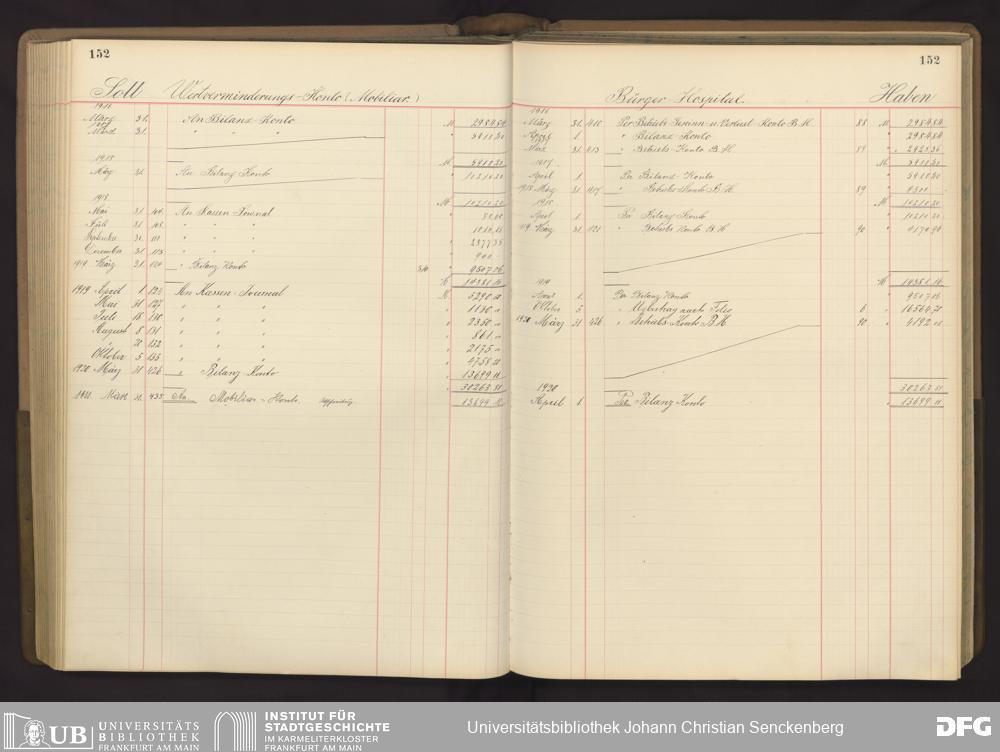 152
Soll Wertverminderungs-Konto (Mobiliar.)
1916
März 31. An Bilanz-Konto M. 2984.84
März 31. " " " " 5910.30
1918
März 31. An Bilanz Konto 10210.30
1918
Mai 31. 104 An Kassen-Journal
31. 105 " " "
30. 111 " " " 2377.35
Dezember 31. 113 " " " 900.
1919 März 31. 120 " Bilanz Konto 9507.06
14381.16
1919 April 1 123 An Kassen-Journal M. 5290.
Mai 31 127 " " " 1130
Juli 18 130 " " " 2350
August 8 131 " " " 861
" 20 132 " " " 2175
Oktober 5 135 " " " 4758
1920 März 31 426 " Bilanz-Konto 13699.11
30263.81
1921 März 31. 435 An Mobiliar-Konto 13699.11
152
Bürger-Hospital. Haben
1916
März 31. 410 Per Betriebs-Gewinn-u. Verlust-Konto B.H. 88 M. 2984.84
April 1 " Bilanz-Konto " 2984.84
März 31. 413 " Betriebs-Konto B.H. 89 " 2925.36
M. 5910.30
1917
April 1. Per Bilanz-Konto " 5910.30
1918 März 31. 417 " Betriebs-Konto B.H. 89 " 4300
M. 10210.30
1918
April 1. Per Bilanz-Konto " 10210.30
1919 März 31. 421 " Betriebs Konto B.H. 90 " 4170.96
M. 14381.16
1919
April 1. Per Bilanz-Konto 9507.06
Oktober 5 " Uebertrag nach Folio 6 16564.70
1920 März 31 426 " Betriebs-Konto B.H. 90 " 4192.05
30263.81
1920
April 1. Per Bilanz Konto " 13699.11
UB UNIVERSITÄTS
BIBLIOTHEK
FRANKFURT AM MAIN
INSTITUT FÜR
STADTGESCHICHTE
IM KARMELITERKLOSTER
FRANKFURT AM MAIN
Universitätsbibliothek Johann Christian Senckenberg
DFG